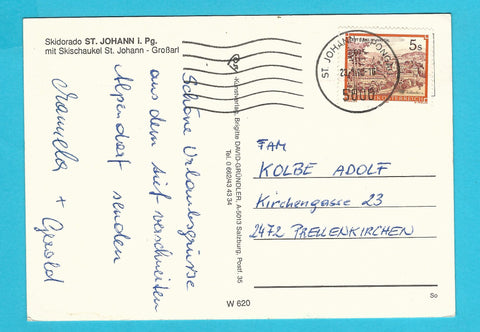 Skidorado ST. JOHANN i. Pg.
mit Skischaukel St. Johann - Großarl
Schöne Urlaubsgrüsse
aus dem tief verschneiten
Alpendorf senden
Manuela + Gerold
Kunstverlag Brigitte DAVID-GRÜNDLER, A-5013 Salzburg, Postf. 35
Tel. 0 662/43 43 34
ST. JOHANN IM PONGAU
5600
5s
ÖSTERREICH
FAM
KOLBE ADOLF
Kirchengasse 23
2472 PRELLENKIRCHEN
W 620
So